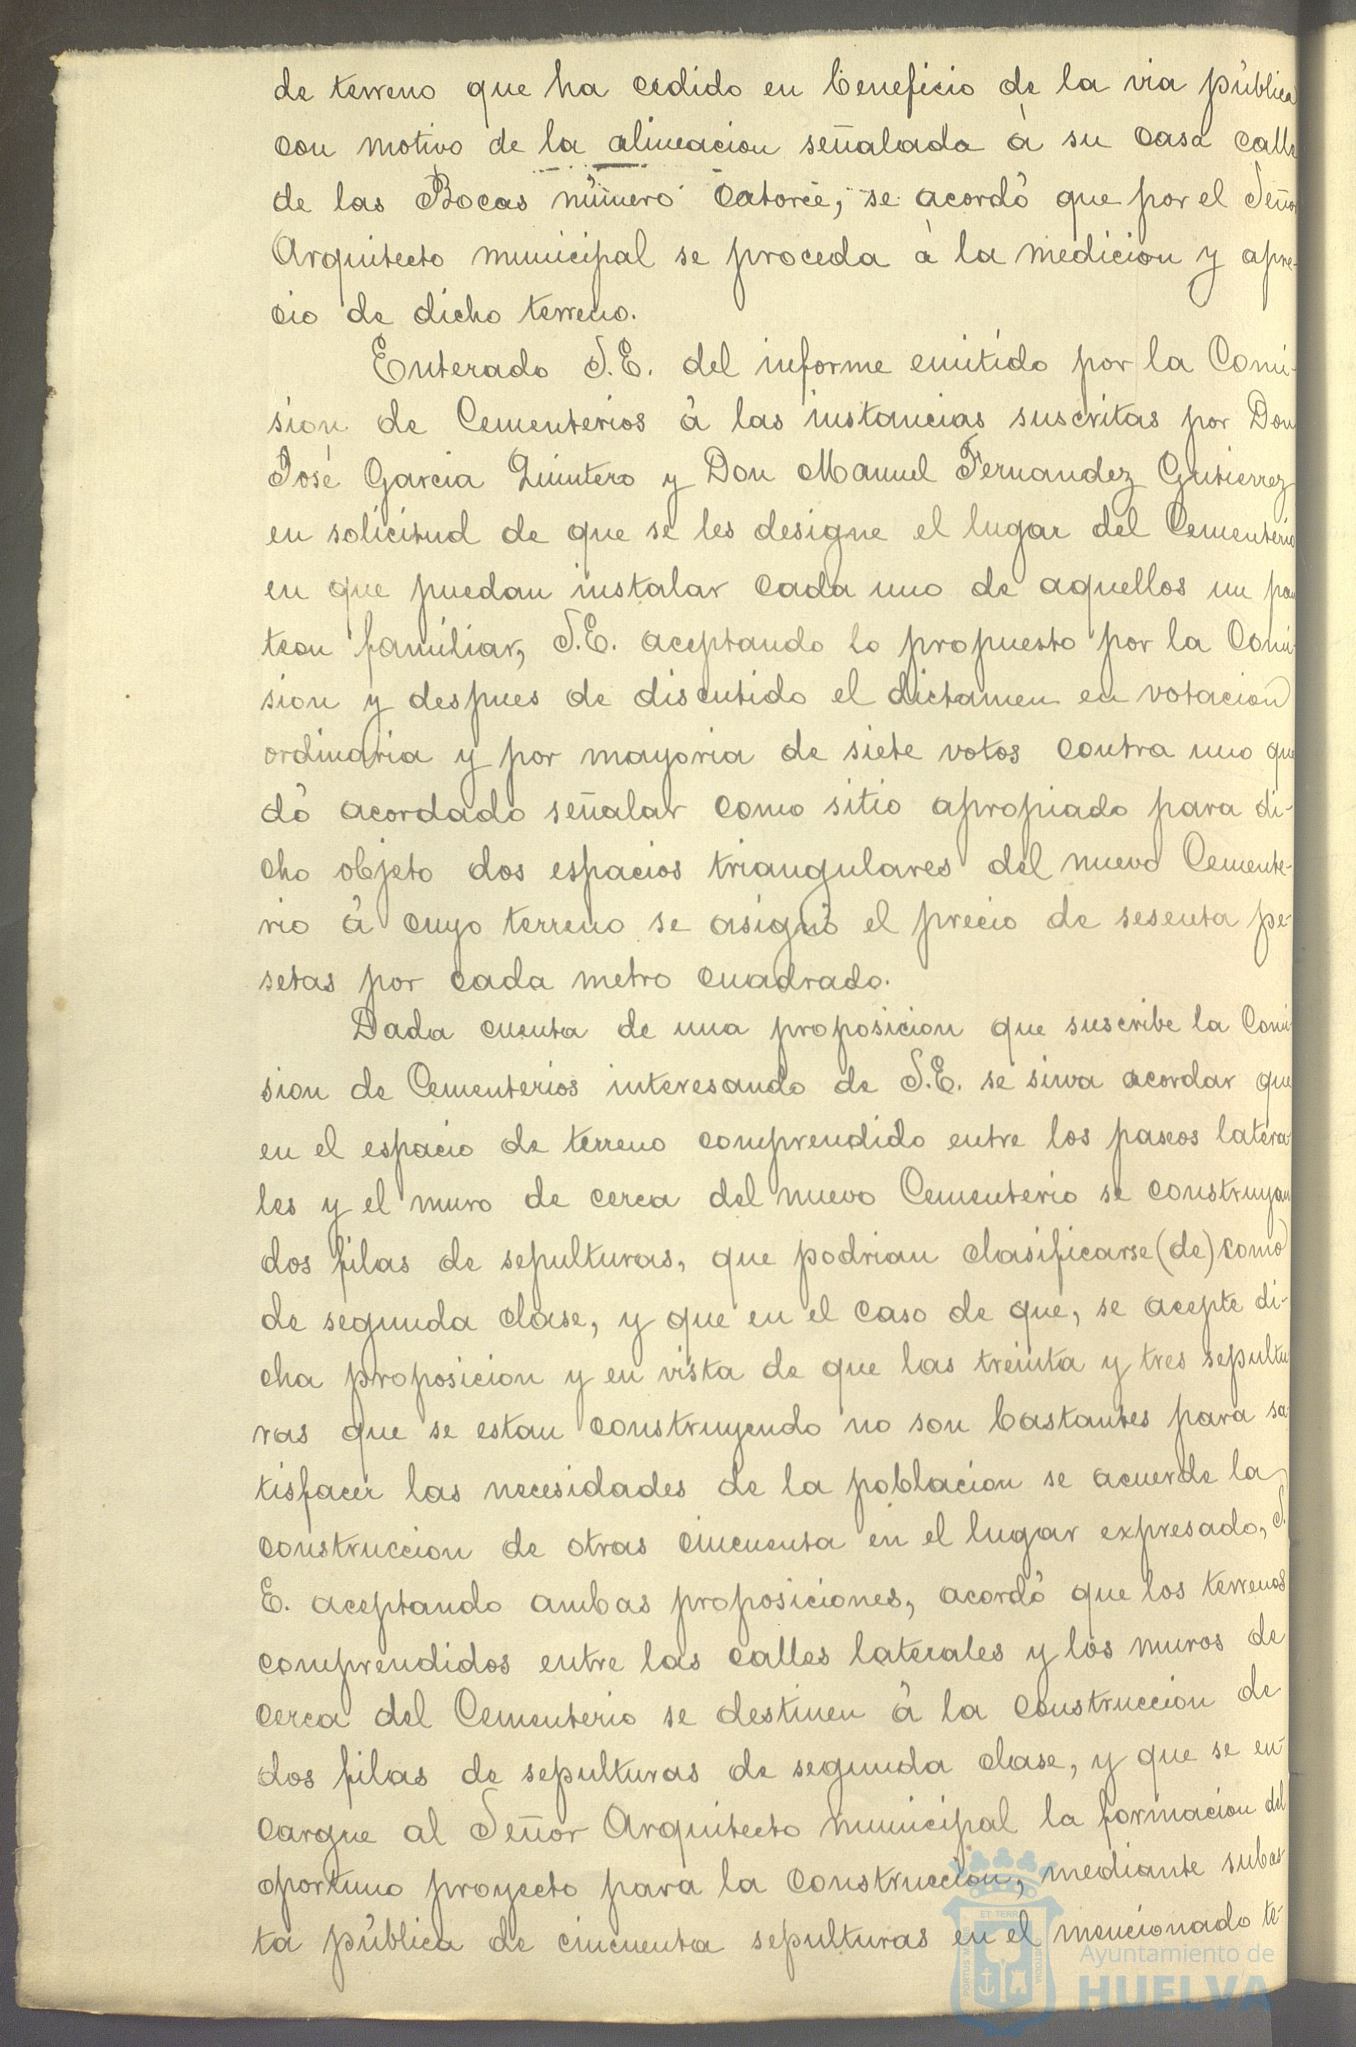 de terreno que ha cedido en beneficio de la via pública
con motivo de la alineacion señalada á su casa calle
de las Bocas número catorce, se acordó que por el Señor
Arquitecto municipal se proceda á la medicion y apre-
cio de dicho terreno.
Enterado S.E. del informe emitido por la Comi-
sion de Cementerios á las instancias suscritas por Don
José Garcia Quintero y Don Manuel Fernandez Gutierrez
en solicitud de que se les designe el lugar del Cementerio
en que puedan instalar cada uno de aquellos un pan
teon familiar, S.E. aceptando lo propuesto por la Comi-
sion y despues de discutido el dictamen en votacion
ordinaria y por mayoria de siete votos contra uno que
dó acordado señalar como sitio apropiado para di-
cho objeto dos espacios triangulares del nuevo Cemente-
rio á cuyo terreno se asignó el precio de sesenta pe-
setas por cada metro cuadrado.
Dada cuenta de una proposicion que suscribe la Comi
sion de Cementerios interesando de S.E. se sirva acordar que
en el espacio de terreno comprendido entre los paseos latera
les y el muro de cerca del nuevo Cementerio se construyan
dos filas de sepulturas, que podrian clasificarse (de) como
de segunda clase, y que en el caso de que, se acepte di-
cha proposicion y en vista de que las treinta y tres sepultu
ras que se estan construyendo no son bastantes para sa-
tisfacer las necesidades de la poblacion se acuerde la
construccion de otras cincuenta en el lugar expresado, S.
E. aceptando ambas proposiciones, acordó que los terrenos
comprendidos entre las calles laterales y los muros de
cerca del Cementerio se destinen á la construccion de
dos filas de sepulturas de segunda clase, y que se en-
cargue al Señor Arquitecto municipal la formacion del
oportuno proyecto para la construccion, mediante subas-
ta pública de cincuenta sepulturas en el mencionado te-
Ayuntamiento de
HUELVA